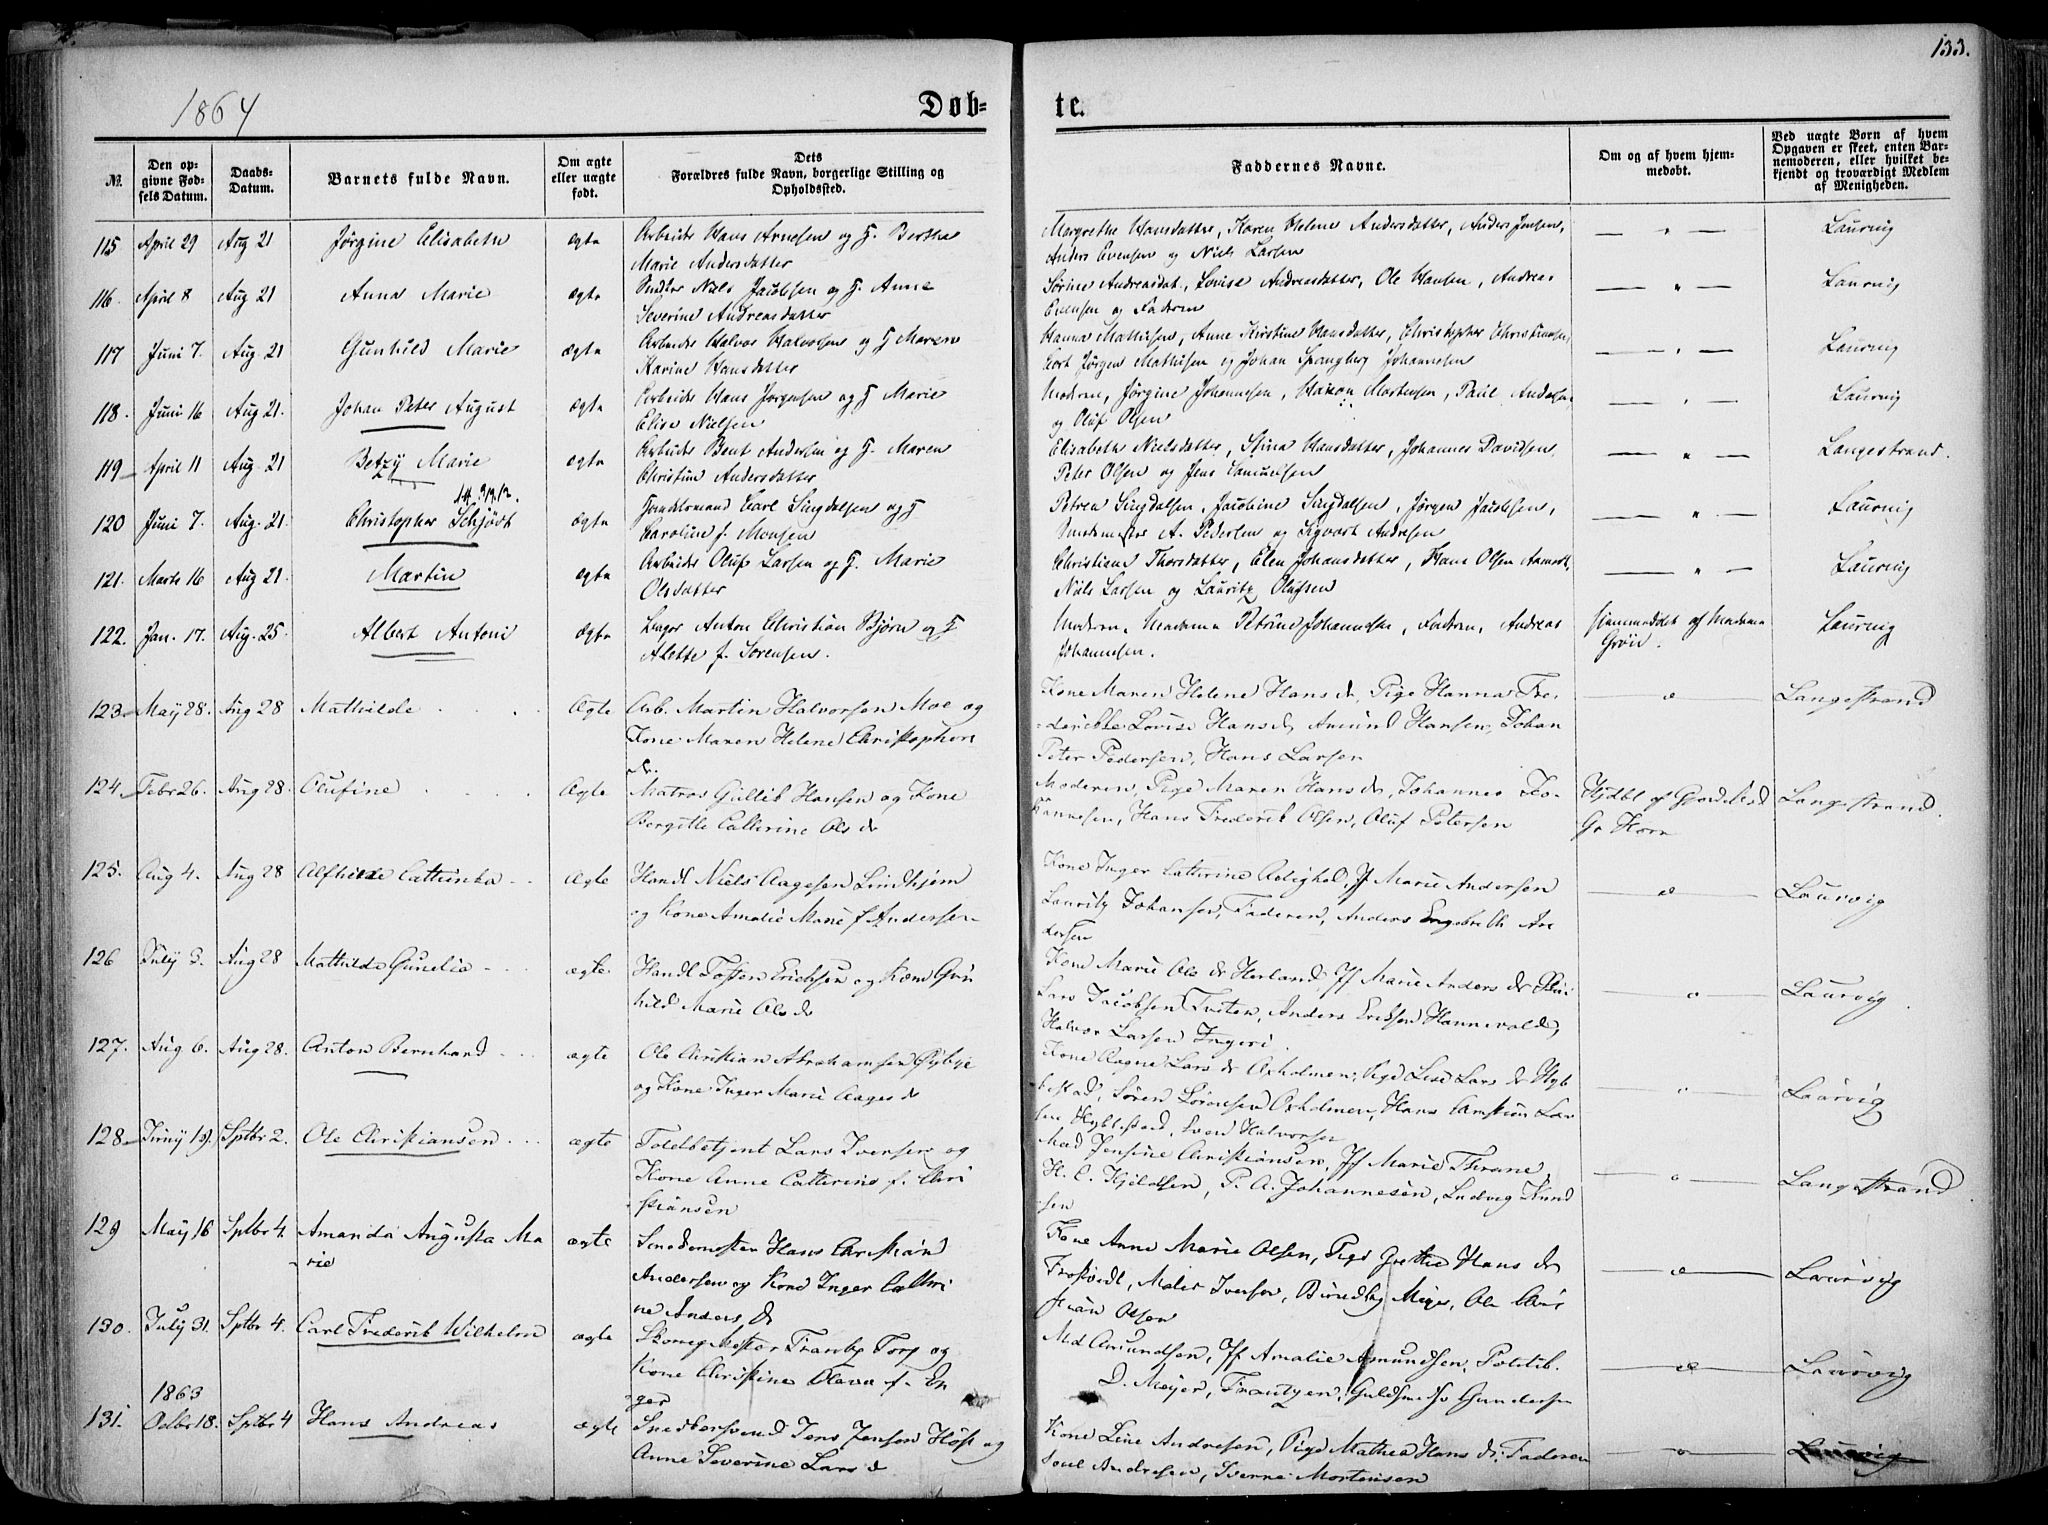 133.
1864
Døb-
te.
№.
Den op-
givne Fød-
sels Datum.
Daabs-
Datum.
Barnets fulde Navn.
Om ægte
eller uægte
født.
Dets
Forældres fulde Navn, borgerlige Stilling og
Opholdssted.
Faddernes Navne.
Om og af hvem hjem-
medøbt.
Ved uægte Born af hvem
Opgaven er skeet, enten Bar-
nemoderen, eller hvilket be-
kjendt og troværdigt Medlem
af Menigheden.
115 April 29 Aug 21 Jørgine Elisabeth ægte Arbeider Hans Arnesen og H. Berthe
Marie Andersdatter
Margrethe Hansdatter, Karen Helene Andersdatter, Anders Jensen,
Anders Evensen og Niels Larsen
— " — Laurvig
116. April 8 Aug 21 Anna Marie ægte Niels Jacobsen og H. Anne
Severine Andreasdatter
Sørine Andreasdat., Louise Andreasdatter, Ole Hansen, Andreas
Evensen og Fadren
— " — Laurvig
117 Juni 7. Aug. 21 Gunhild Marie ægte Arbeider Halvor Halvorsen og H Maren
Karine Hansdatter
Hanna Mathisen, Anne Kirstine Hansdatter, Christopher Christiansen,
Jørgen Mathisen og Johan Spangberg Johannesen
— " — Laurvig
118. Juni 16 Aug 21. Johan Peter August ægte Arbeider Hans Jørgensen og H Marie
Elise Nielsen
Modren, Jørgine Johannesen, Haxon Mortensen, Paul Andersen
og Oluf Olsen
— " — Laurvig
119 April 11 Aug. 21 Betzy Marie ægte Arbeider Bent Andersen og H. Maren
Christine Andersdatter
Elisabeth Nielsdatter, Stina Hansdatter, Johannes Davidsen,
Peter Olsen og Jens Samuelsen
— " — Langestrand.
120 Juni 7. Aug. 21. Christopher Schjødt ægte Carl Singdalsen og H
Caroline f. Monsen
Petrea Singdalsen, Jacobine Singdalsen, Jørgen Jacobsen,
A. Pedersen og Sigvart Andresen
— " — Laurvig
121. Marts 16 Aug 21. Martin ægte Arbeider Oluf Larsen og H. Marie
Olsdatter
Christiane Thorsdatter, Elen Johansdatter, Hans Olsen
Niels Larsen og Lauritz Olufsen
— " — Laurvig
122. Jan. 17. Aug. 25. Albert Antoni ægte Anton Christian Bjørn og H
Alette f. Sørensen.
Modren, Madame Petrine Johannesen, Fadren, Andreas
Johannesen.
Hjemmedøbt af Madame
Grøn.
Laurvig
123 May 28. Aug 28 Mathilde Ægte Arb. Martin Halvorsen Moe og
Kone Maren Helene Christophers
dr.
Kone Maren Helene Hans dr, Pige Hanna Fre-
derikke Lovise Hans dr Amund Hansen, Johan
Peter Pedersen, Hans Larsen
Langestrand
124 Febr 26. Aug 28. Olufine Ægte Matros Gullik Hansen og Kone
Bergitte Cathrine Ols dr
Moderen, Pige Maren Hans dr, Johannes Jo-
hannesen, Hans Frederik Olsen, Oluf Petersen
Hjdbt af
Gr Horn
Langestrand.
125. Aug 4. Aug 28 Alfhilde Cathinka Ægte Handl Niels Aagesen Lindhjem
og Kone Amalie Marie f Andersen
Kone Inger Cathrine, Jf Marie Andersen
Lauritz Johansen, Faderen, Anders Engebreth An
dersen
Laurvig
126 July 3. Aug 28 Mathilde Gunelie ægte Handl Tosten Ericksen og Kone Gun
hild Marie Ols dr
Kone Marie Ols dr Herland, Jf Marie Anders dr
Lars Jacobsen Tveten, Anders Eriksen Hannevold,
Halvor Larsen Ingeri.
Laurvig.
127. Aug 6. Aug 28. Anton Bernhard ægte Ole Christian Abrahamsen
og Kone Inger Marie Aages dr
Kone Ragne Lars dr Axholmen, Pige Lise Lars dr Hyb
bestad, Søren Sørensen Axholmen, Hans Christian Lar
sen Hybbestad, Svend Halvorsen
Laurvig
128 Juny 19. Sptbr 2. Ole Christiansen ægte Toldbetjent Lars Iversen og
Kone Anne Cathrine f. Chri
stiansen
Mad Jensine Christiansen, Jf Marie Thrane,
H. C. Kjeldsen, P. A. Johannesen, Ludvig Knud
sen
Langestrand
129 May 16 Sptbr 4. Amanda Augusta Ma
rie ægte Smedemester Hans Christian
Andersen og Kone Inger Cathri
ne Anders dr
Kone Anne Marie Olsen, Pige Grethe Hans dr
Iversen, Ole Chri
stian Olsen
Laurvig
130. July 31. Sptbr 4. Carl Frederik Wilhelm ægte Mester Tranby Torp og
Kone Christine Olava f. En
ger
Md Amundsen, Jf Amalie Amundsen, Politib.
D. Meyer, Frantzen, Guldsmed Gundersen
Laurvig
1863
131. Octbr 18. Sptbr 4 Hans Andreas ægte Snedkersvend Jens Jensen Høst og
Anne Severine Lars dr
Kone Line Andresen, Pige Mathea Hans dr, Faderen
Andresen, Sverre Mortensen
Laurvig